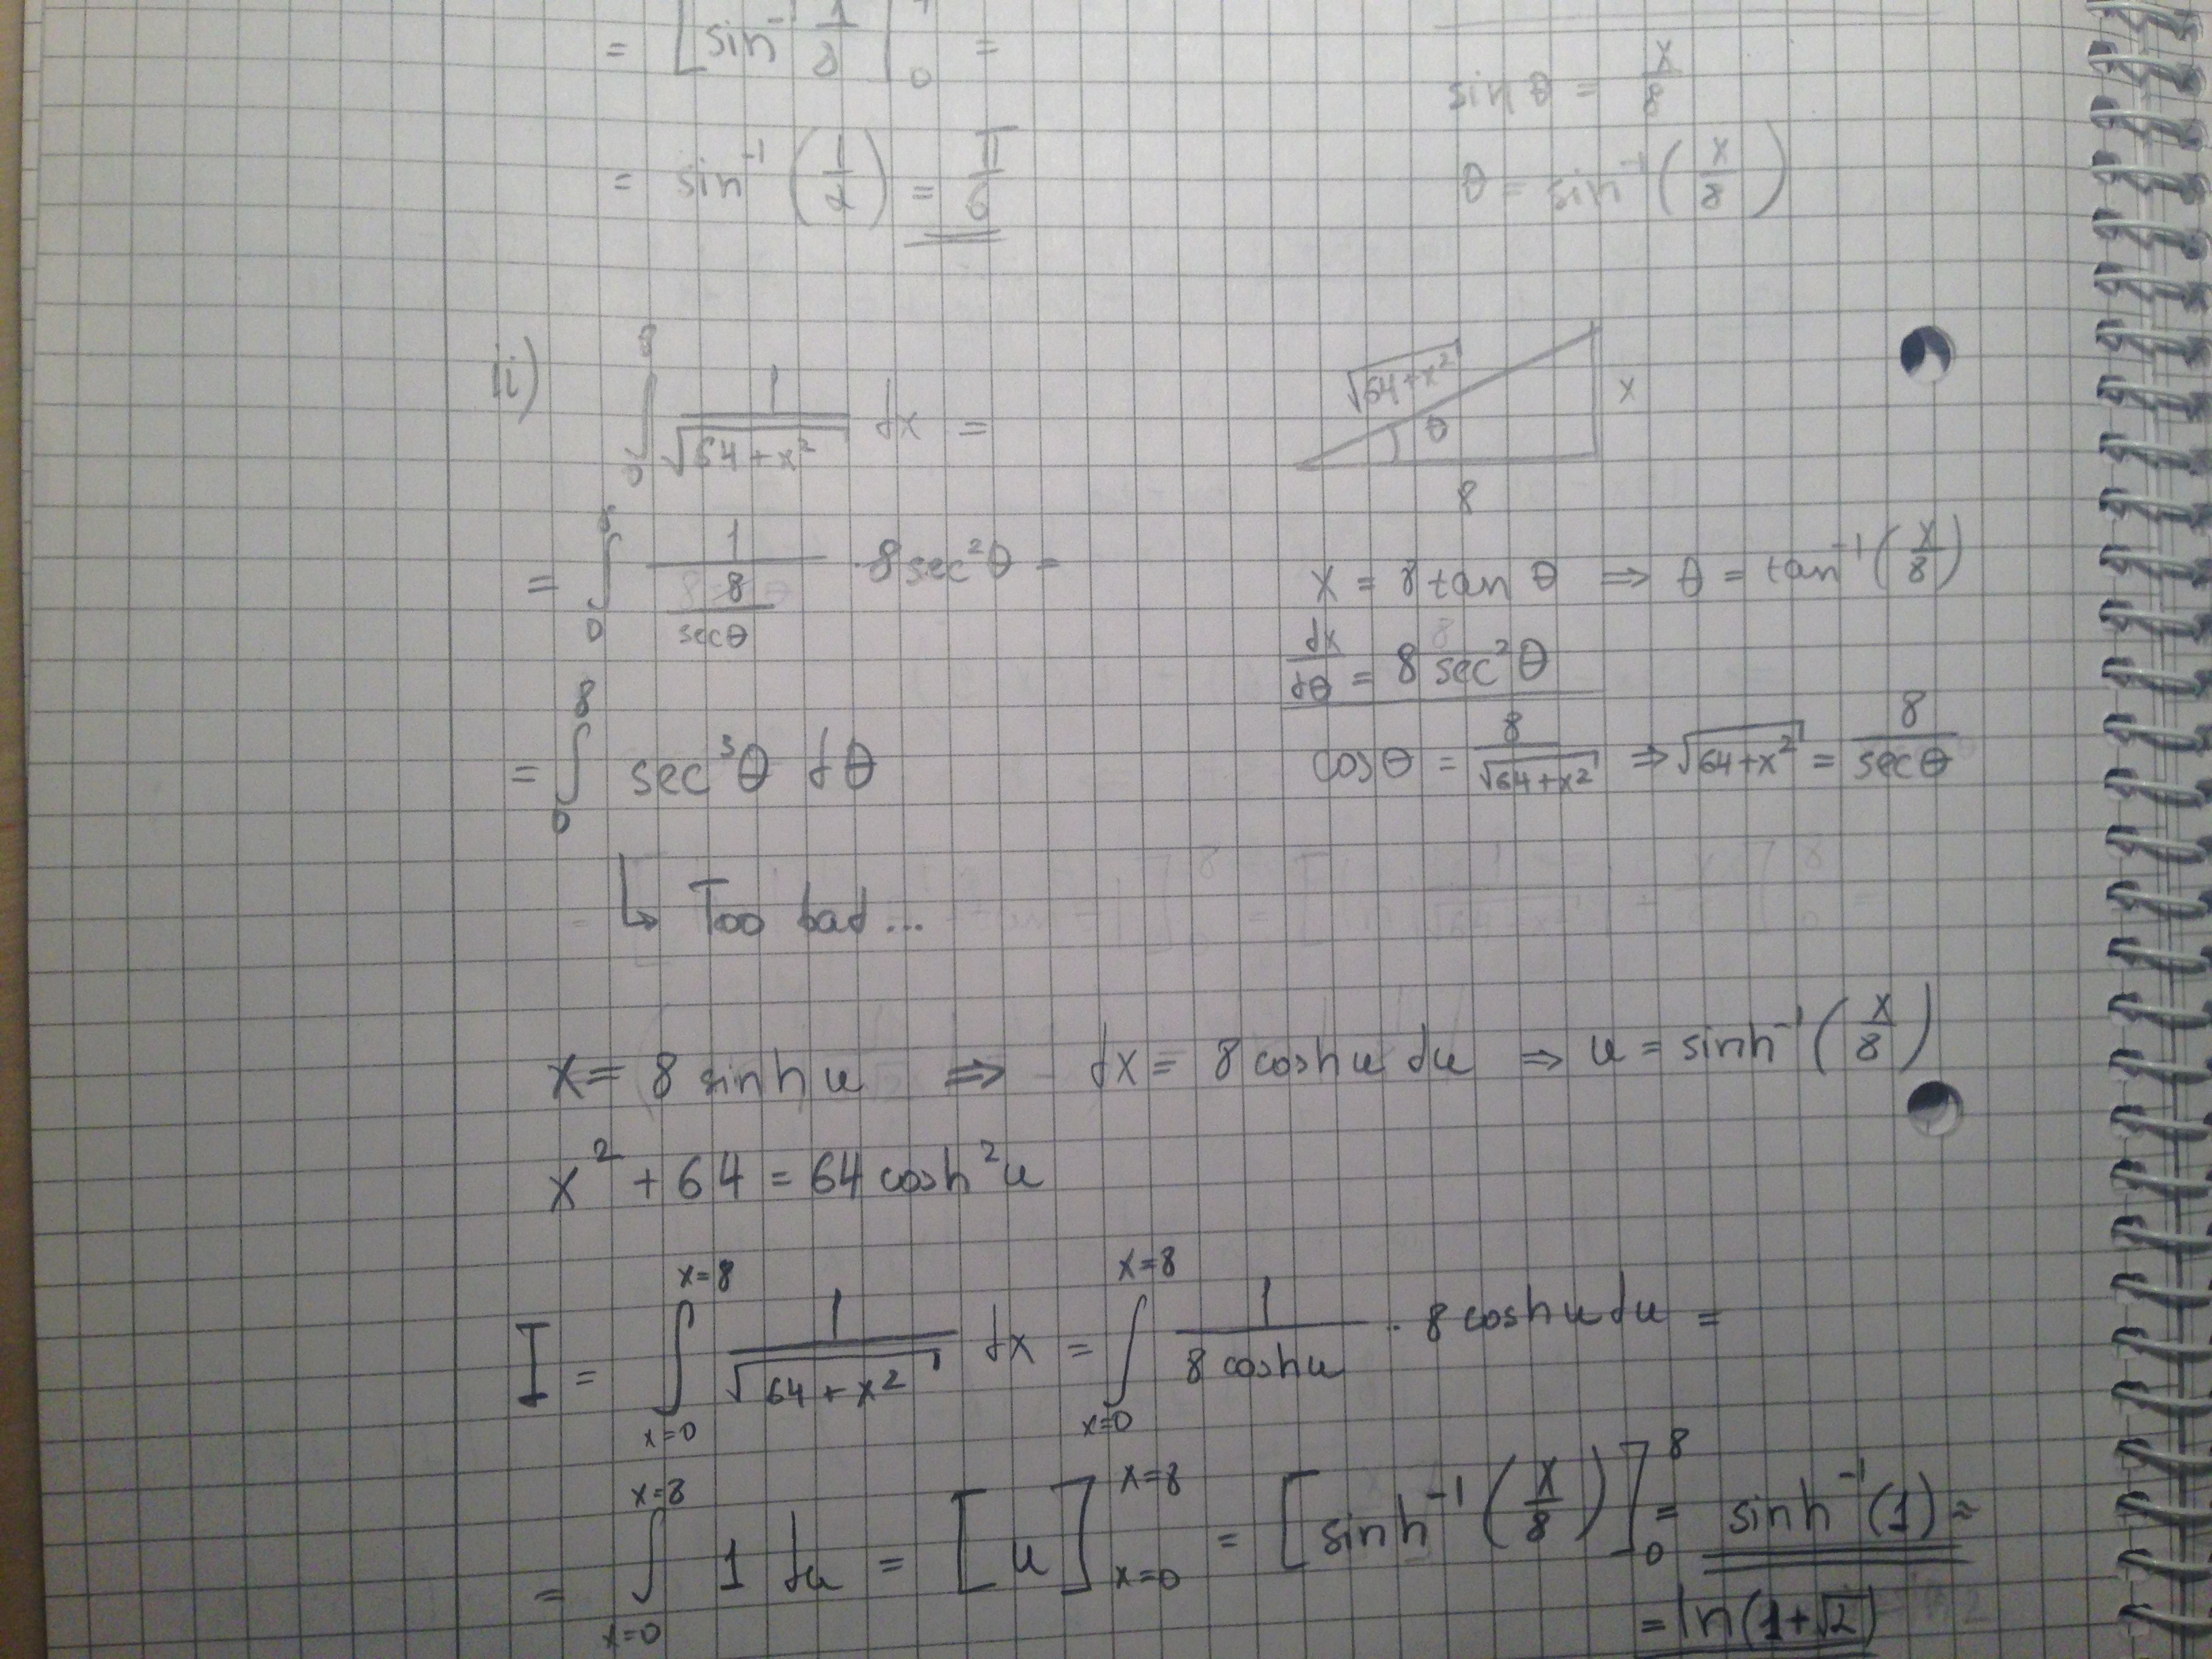 = [sin⁻¹ 1/8]₀ =
sin θ = x/8
= sin⁻¹ (1/2) = π/6
θ = sin⁻¹ (x/8)
ii) ∫₀⁸ 1/√(64+x²) dx =
√(64+x²)
x
θ
8
= ∫₀⁸ 1/(8/secθ) · 8 sec²θ =
x = 8 tan θ ⇒ θ = tan⁻¹ (x/8)
dx/dθ = 8 sec²θ
= ∫₀⁸ sec³θ dθ
cosθ = 8/√(64+x²) ⇒ √(64+x²) = 8/secθ
↳ Too bad...
x = 8 sinh u ⇒ dx = 8 cosh u du ⇒ u = sinh⁻¹ (x/8)
x² + 64 = 64 cosh² u
I = ∫_{x=0}^{x=8} 1/√(64+x²) dx = ∫_{x=0}^{x=8} 1/(8 cosh u) · 8 cosh u du =
= ∫_{x=0}^{x=8} 1 du = [u]_{x=0}^{x=8} = [sinh⁻¹ (x/8)]₀⁸ = sinh⁻¹ (1) =
= ln(1+√2)